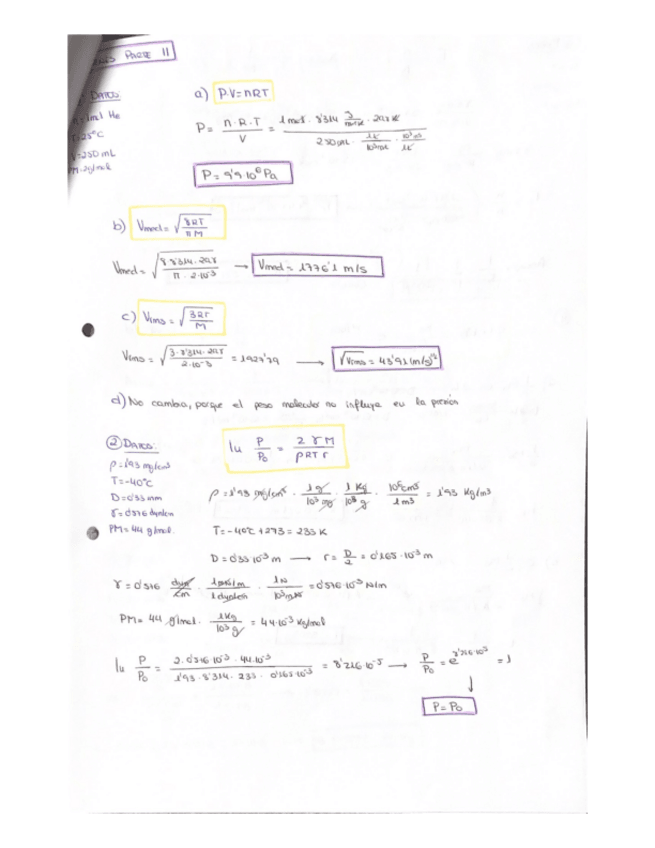 PARTE II
DATOS:
1mol He
T=25ºC
V=250 mL
PM=2g/mol
a) P·V=nRT
P = n·R·T / V = 1mol · 8'314 J/mol·K · 298 K / 250mL · 1L/10³mL · 10⁻³m³/1L
P = 9'9·10⁶ Pa
b) Vmed = √(8RT/πM)
Vmed = √(8·8'314·298/π·2·10⁻³) → Vmed = 1776'1 m/s
c) Vrms = √(3RT/M)
Vrms = √(3·8'314·298/2·10⁻³) = 1927'79 → √Vrms = 43'91 (m/s)
d) No cambia, porque el peso molecular no influye en la presión
② DATOS:
ρ=1'93 mg/cm³
T=-40ºC
D=0'33 mm
γ=0'576 dyn/cm
PM=44 g/mol.
ln P/P₀ = 2γM / ρRTr
ρ=1'93 mg/cm³ · 1g/10³mg · 1Kg/10³g · 10⁶cm³/1m³ = 1'93 Kg/m³
T=-40ºC+273 = 233 K
D=0'33·10⁻³ m → r = D/2 = 0'165·10⁻³ m
γ=0'576 dyn/cm · 1mN/m / 1dyn/cm · 1N/10³mN = 0'576·10⁻³ N/m
PM= 44 g/mol · 1Kg/10³g = 44·10⁻³ Kg/mol
ln P/P₀ = 2·0'576·10⁻³·44·10⁻³ / 1'93·8'314·233·0'165·10⁻³ = 8'216·10⁻⁵ → P/P₀ = e = 1
P=P₀